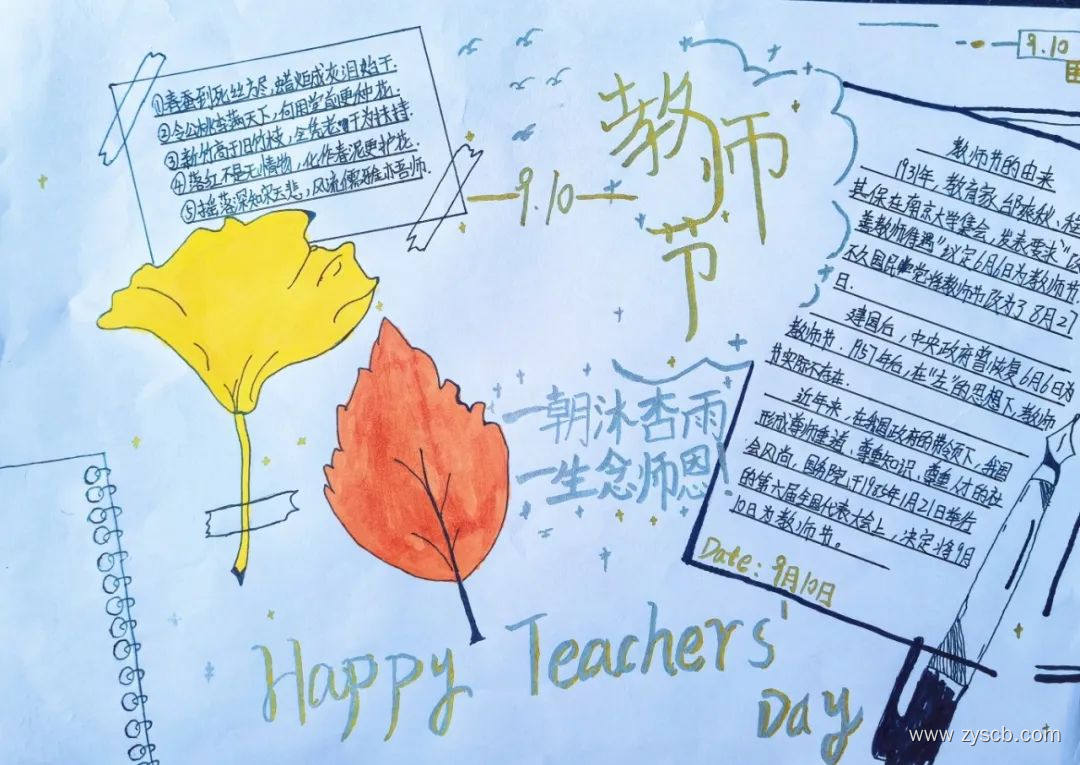 ①春蚕到死丝方尽,蜡炬成灰泪始干.
②令公桃李满天下,何用堂前更种花.
③新竹高于旧竹枝,全凭老干为扶持.
④落红不是无情物,化作春泥更护花.
⑤摇落深知宋玉悲,风流儒雅亦吾师.
教师节
9.10
一朝沐杏雨
一生念师恩!
9.10
教师节的由来
1931年,教育家邰爽秋、程
其保在南京大学集会,发表要求"改
善教师待遇"议定6月6日为教师节.
不久国民党将教师节改为了8月27
日.
建国后,中央政府曾恢复6月6日为
教师节.1957年后,在"左"的思想下,教师
节实际不存在.
近年来,在我国政府的带领下,我国
形成尊师重道、尊重知识、尊重人才的社
会风尚,国务院于1985年1月21日举行
的第六届全国代表大会上,决定将9月
10日为教师节。
Date:9月10日
Happy Teachers'
Day
www.zyscb.com